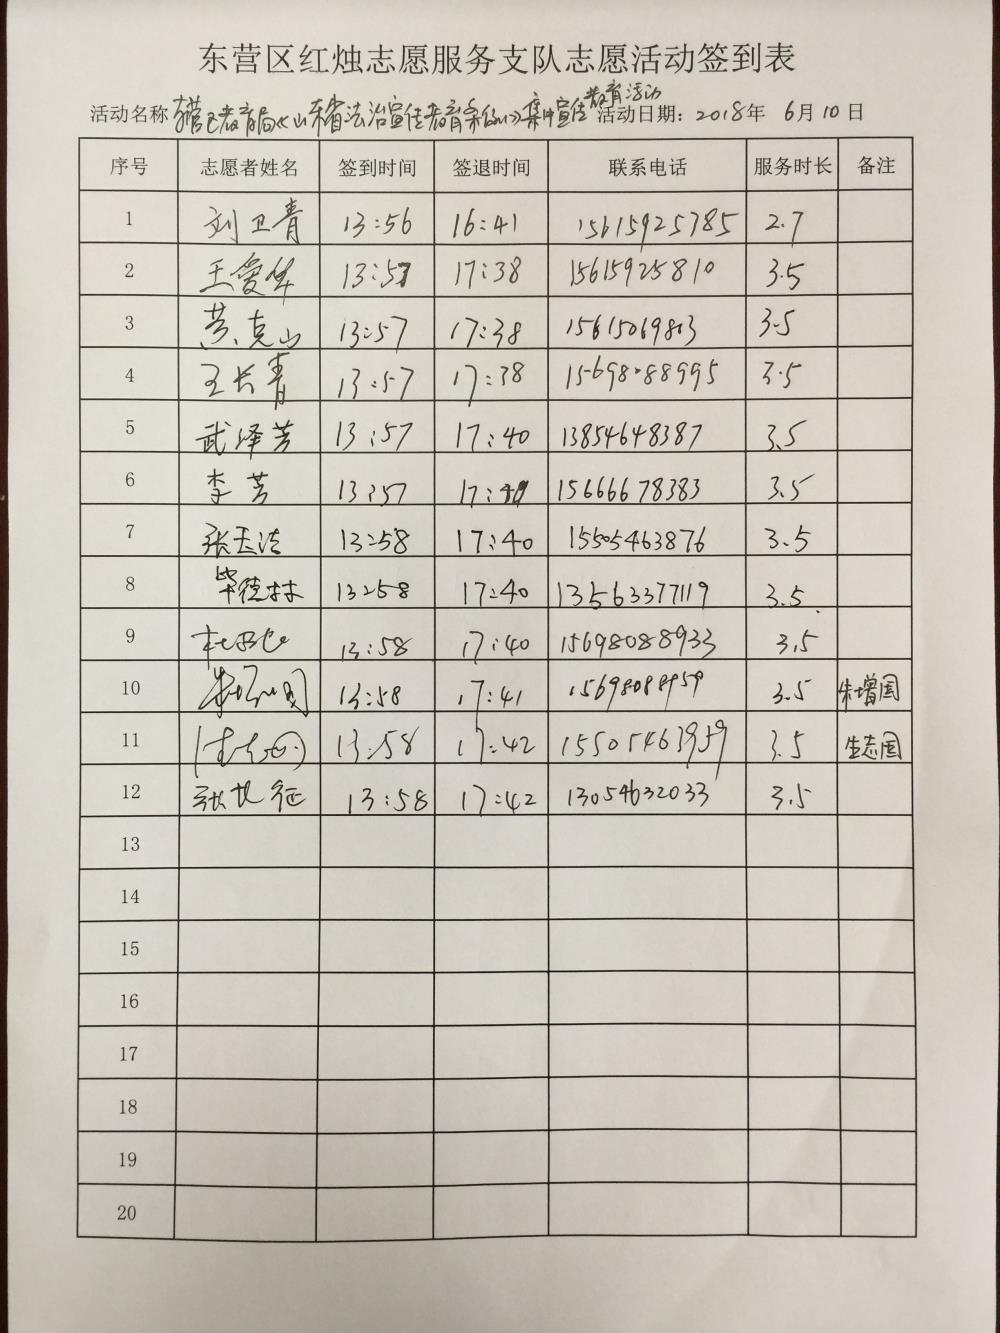 东营区红烛志愿服务支队志愿活动签到表
活动名称 东营区教育局《山东省法治宣传教育条例》集中宣传教育活动 活动日期：2018年 6月10日
序号 志愿者姓名 签到时间 签退时间 联系电话 服务时长 备注
1 刘卫青 13:56 16:41 15615925785 2.7
2 王爱华 13:57 17:38 15615925810 3.5
3 黄克山 13:57 17:38 3.5
4 王长青 13:57 17:38 15698088995 3.5
5 武泽芳 13:57 17:40 13854648387 3.5
6 李芳 13:57 17:40 15666678383 3.5
7 13:58 17:40 15505463876 3.5
8 毕德林 13:58 17:40 13563377119 3.5
9 13:58 17:40 15698088933 3.5
10 朱增国 13:58 17:41 15698088959 3.5 朱增国
11 生志国 13:58 17:42 15505463959 3.5 生志国
12 13:58 17:42 13054632033 3.5
13
14
15
16
17
18
19
20